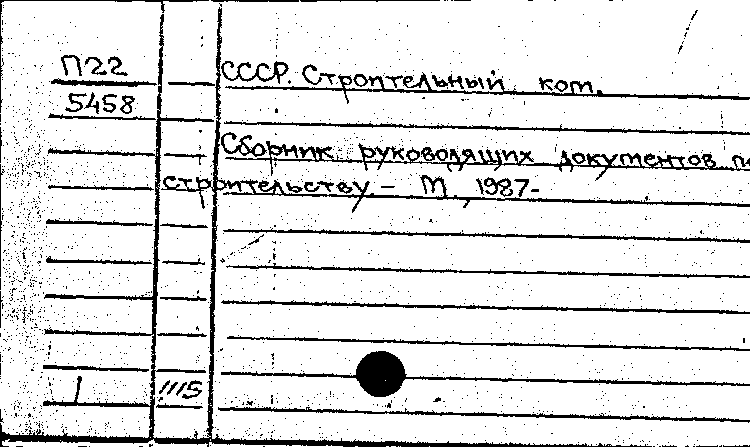 П22
5458
СССР. Строительный ком.
Сборник руководящих документов п
строительству. – М, 1987-
1
1115